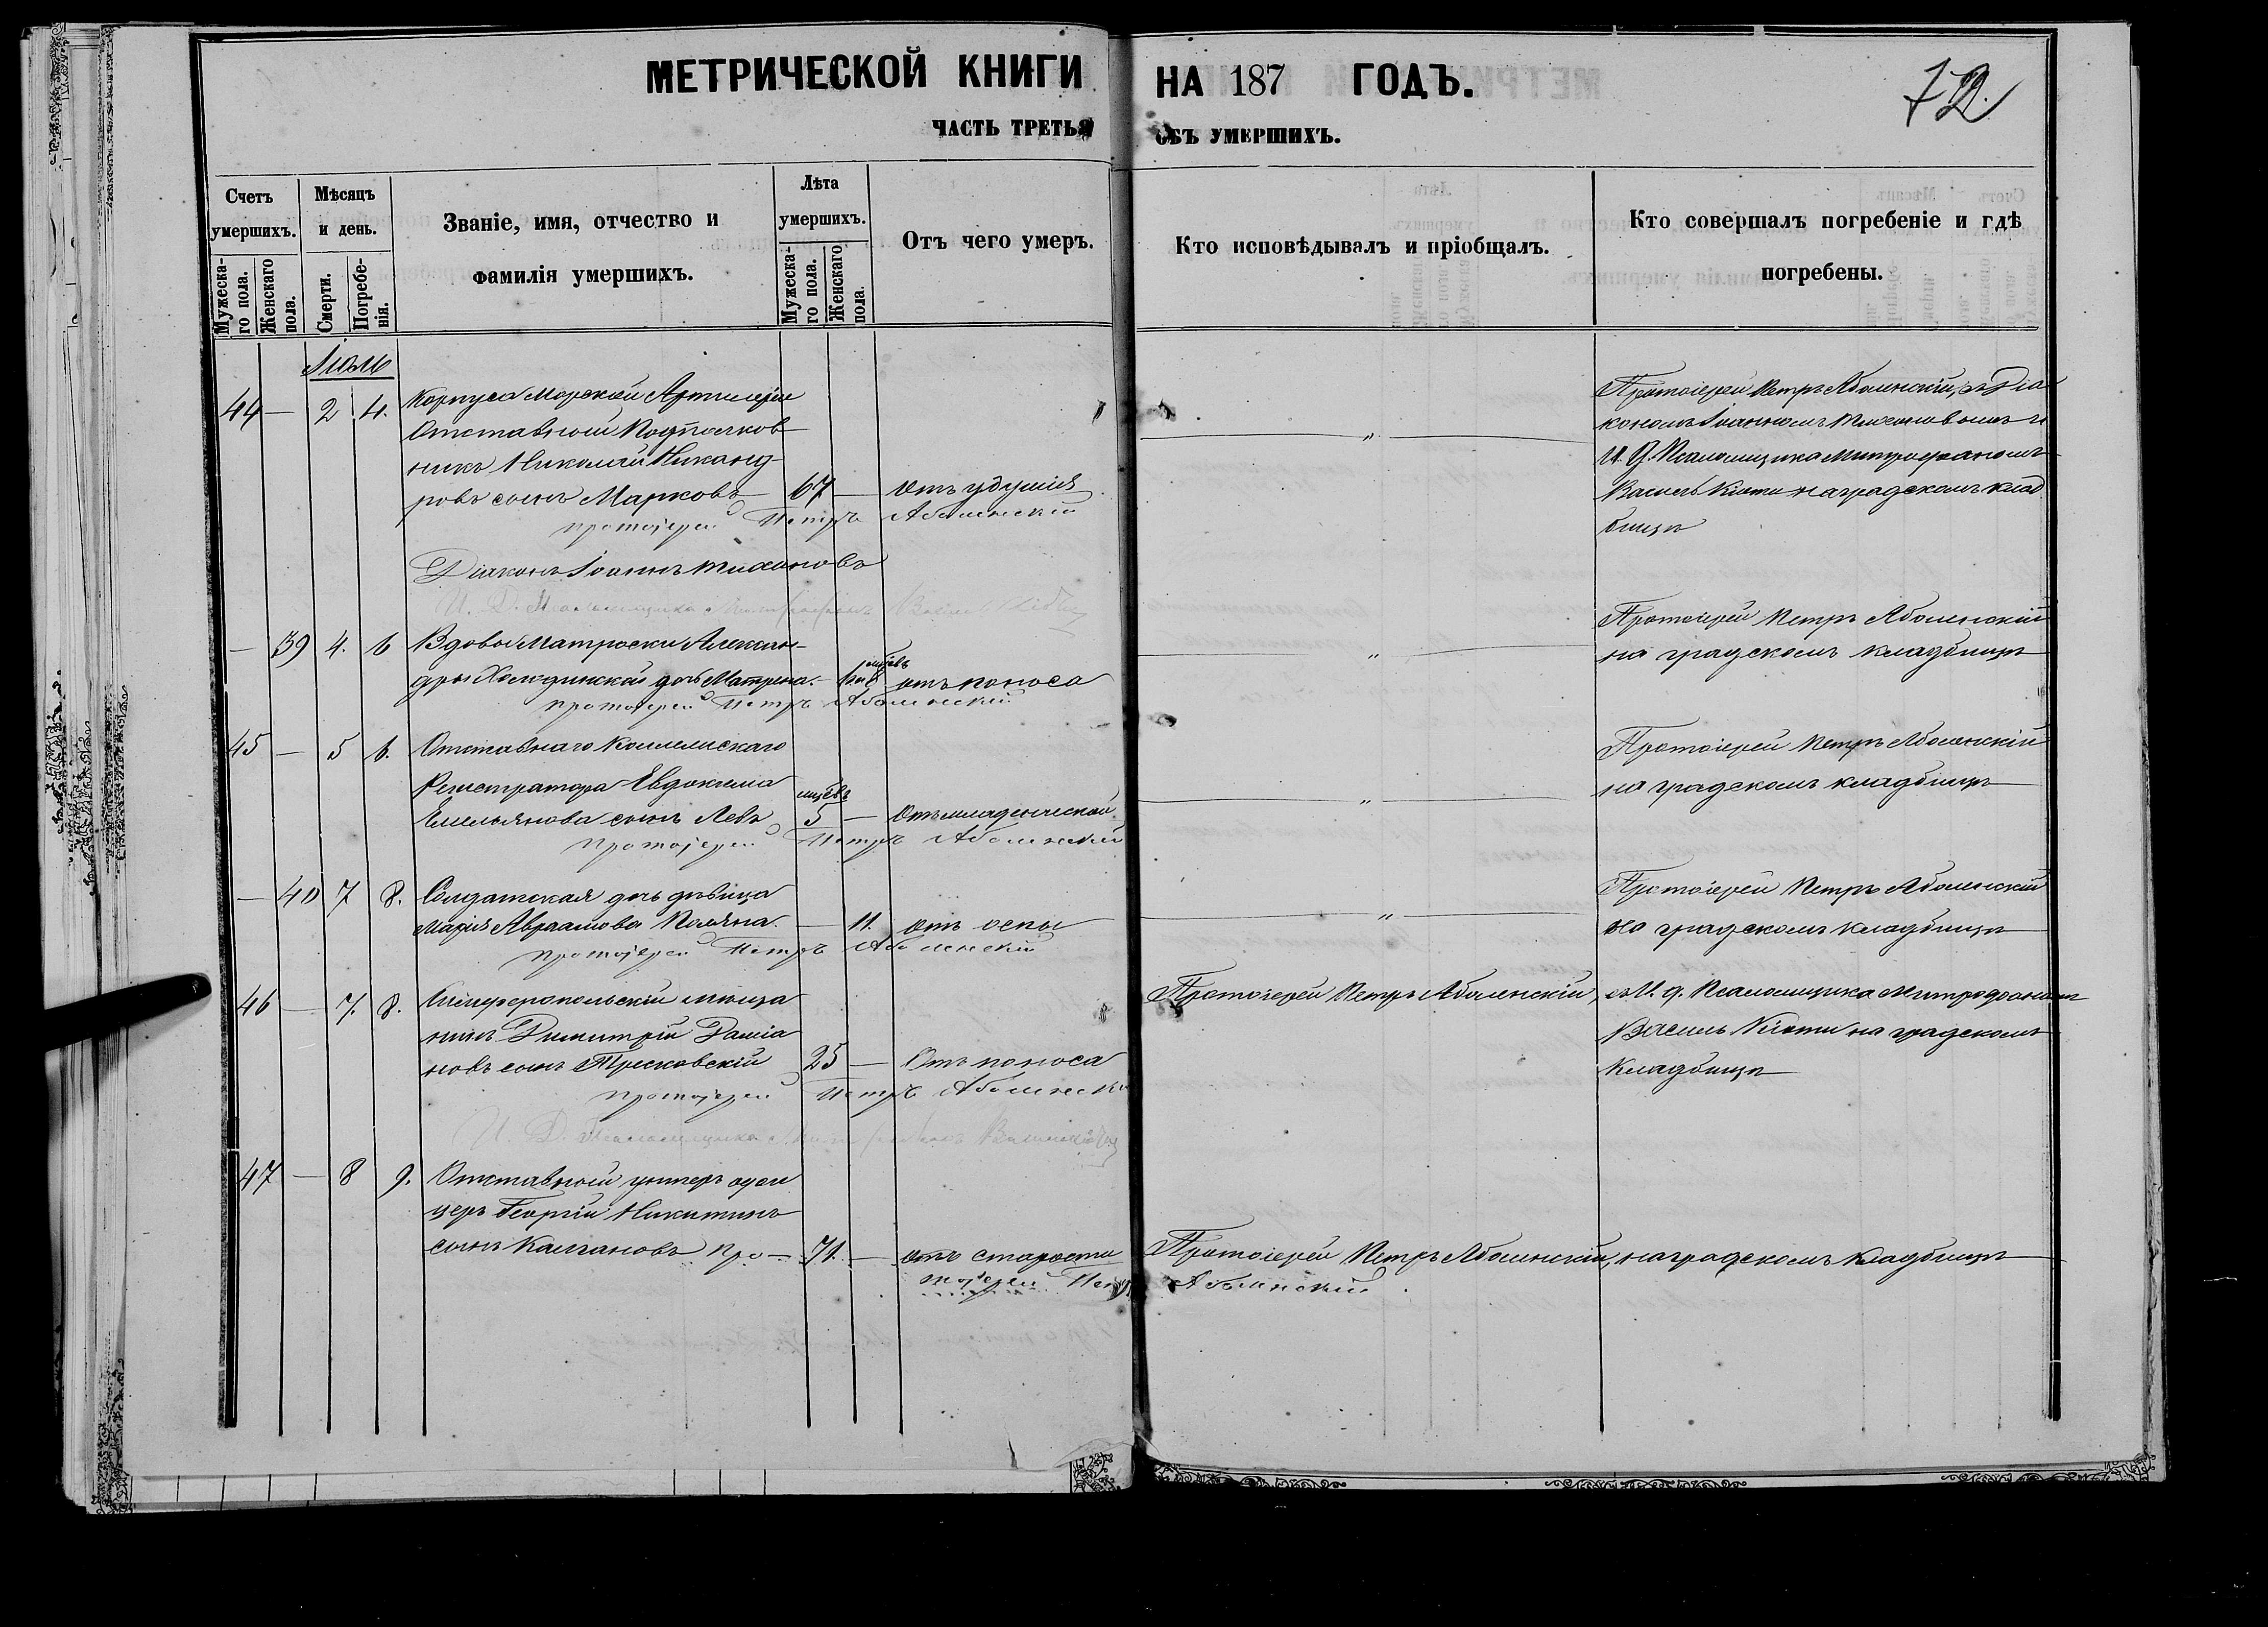 МЕТРИЧЕСКОЙ КНИГИ НА 187 ГОДЪ.
72.
ЧАСТЬ ТРЕТЬЯ ОБЪ УМЕРШИХЪ.
Счетъ умершихъ.
Мужескаго пола.
Женскаго пола.
Мѣсяцъ и день.
Смерти.
Погребенія.
Званіе, имя, отчество и фамилія умершихъ.
Лѣта умершихъ.
Мужескаго пола.
Женскаго пола.
Отъ чего умеръ.
Кто исповѣдывалъ и пріобщалъ.
Кто совершалъ погребеніе и гдѣ погребены.
Іюль
44 — 2 4. Корпуса Морской Артилеріи
Отставной Подполков
никъ Николай Никанд-
ровъ сынъ Марковъ — 67 — Отъ удушія
„
Протоіерей Петръ Аболенскій, съ Діа
кономъ Іоанномъ Тихановымъ и
И. Д. Псаломщика Митрофаномъ
Василь Кіоти на градскомъ клад
бищѣ
протоіерей Петръ Аболенскій
Діаконъ Іоаннъ Тихановъ
И. Д. Псаломщика Митрофанъ
— 39 4. 6 Вдовы Матроски Алексан-
дры Холодинской дочь Матрена. — отъ поноса
„
Протоіерей Петръ Аболенскій
на градскомъ кладбищѣ
протоіерей Петръ Аболенскій
45 — 5 6. Отставнаго Коллежскаго
Регистратора Евдокима
Емельянова сынъ Левъ
мцѣвъ
5 — Отъ младенческой
„
Протоіерей Петръ Аболенскій
на градскомъ кладбищѣ
протоіерей Петръ Аболенскій
— 40 7 8. Солдатская дочь дѣвица
Марія Авраамова — 11. отъ оспы
„
Протоіерей Петръ Аболенскій
на градскомъ кладбищѣ
протоіерей Петръ Аболенскій
46 — 7. 8. Симферопольскій мѣща
нинъ Димитрій Даміа
новъ сынъ Трисковскій 25 — Отъ поноса
Протоіерей Петръ Аболенскій, съ И. д. Псаломщика Митрофаномъ
Василь Кіоти на градскомъ
Кладбищѣ
протоіерей Петръ Аболенскі
И. Д. Псаломщика
47 — 8 9. Отставной унтеръ офи
церъ Георгій Никитинъ
сынъ Калгановъ — 71. — отъ старости
Протоіерей Петръ Аболенскій, на градскомъ кладбищѣ
Протоіерей Петръ Аболенскій